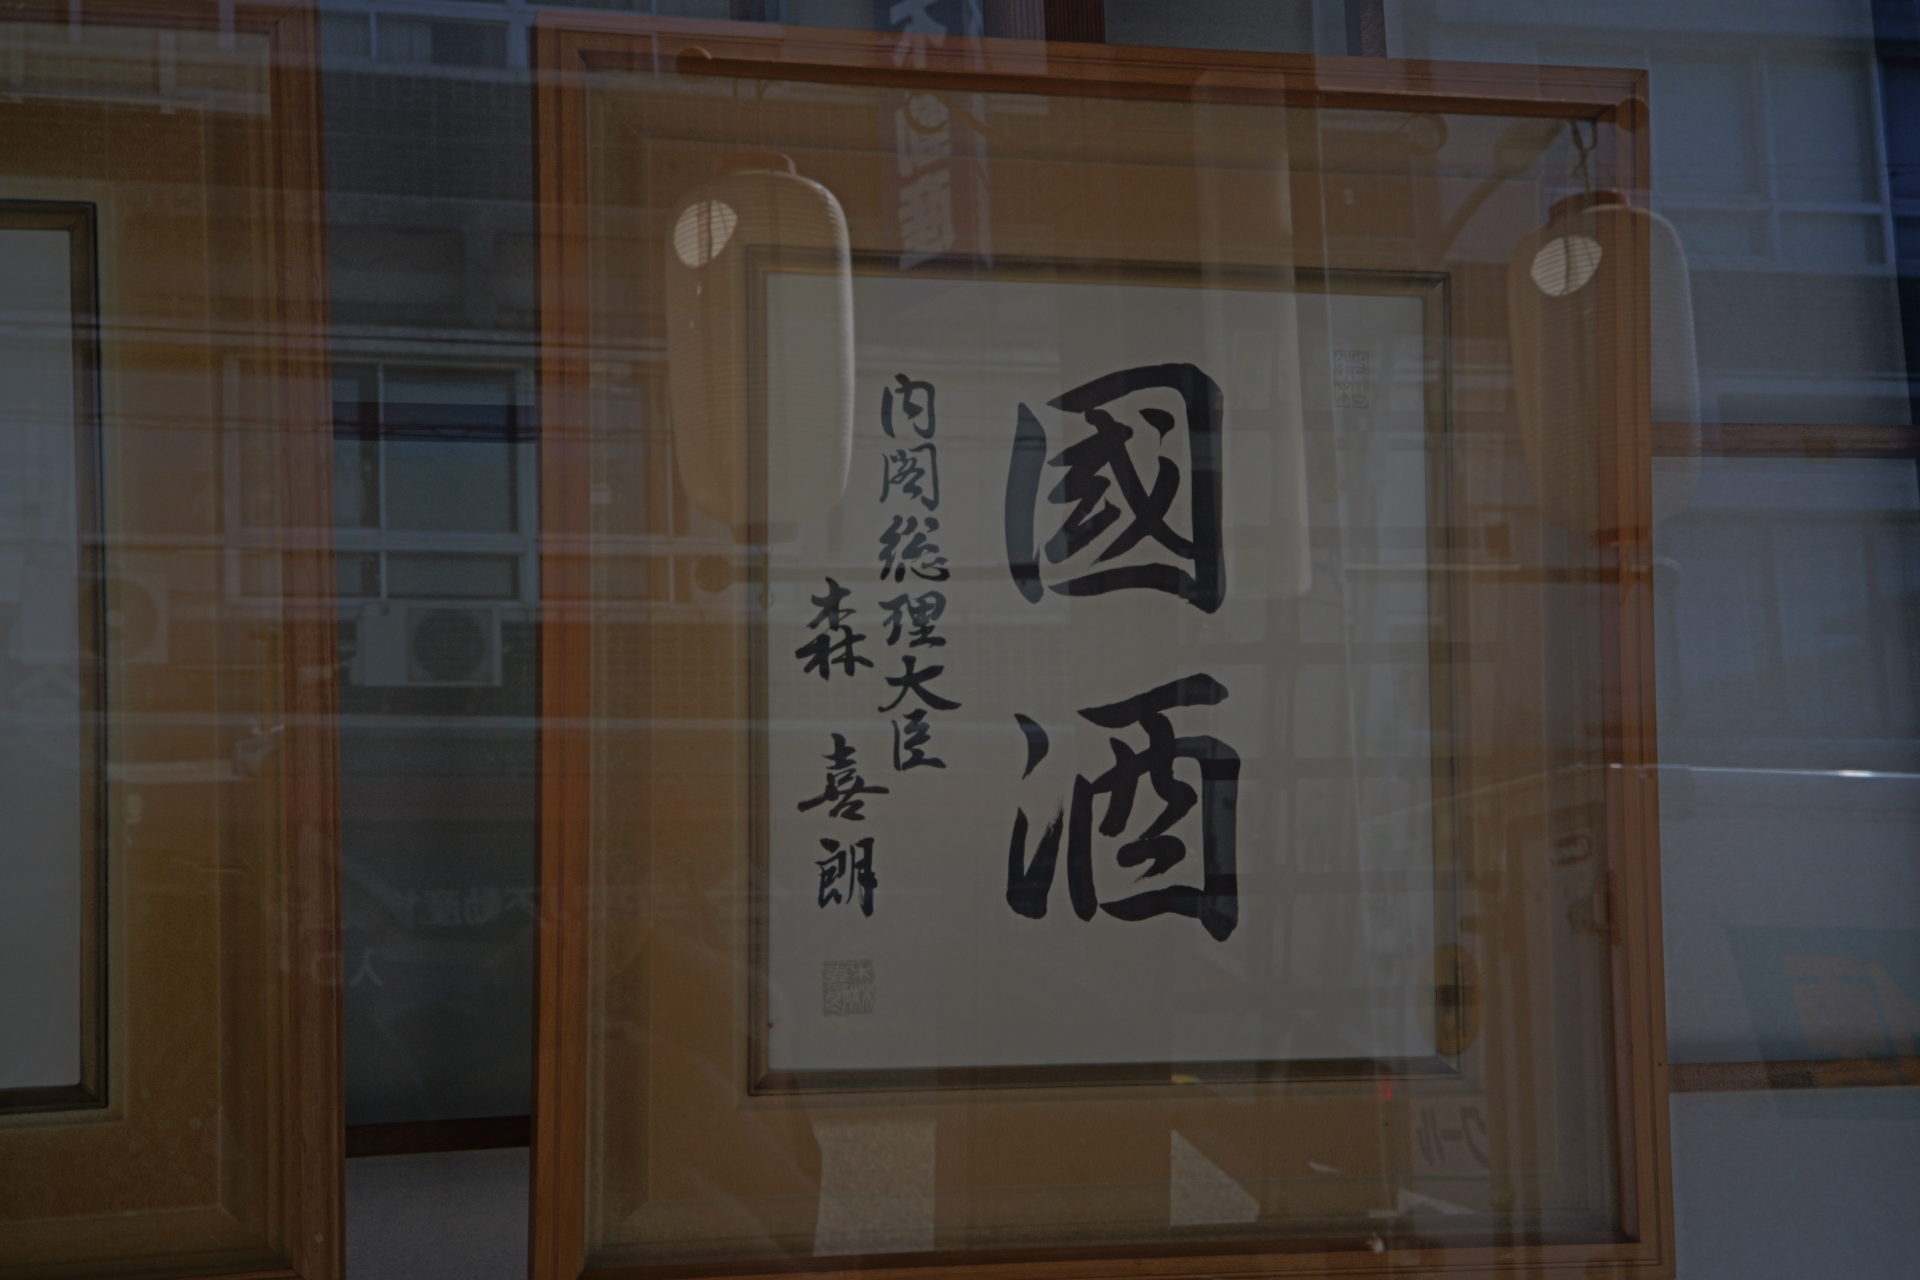 國酒
内閣総理大臣
森喜朗